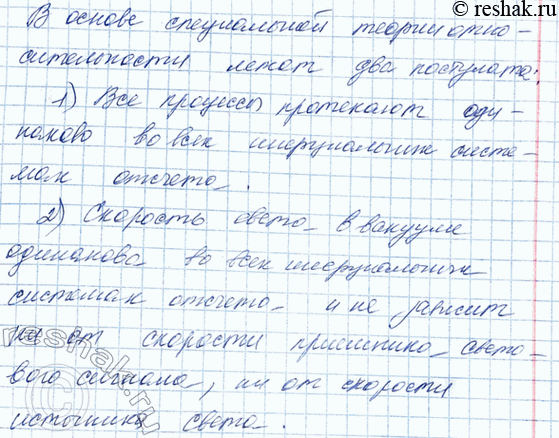 © reshak.ru
В основе специальной теории отно-
сительности лежат два постулата:
1) Все процессы протекают оди-
наково во всех инерциальных систе-
мах отсчета.
2) Скорость света в вакууме
одинакова во всех инерциальных
системах отсчета и не зависит
ни от скорости приемника свето-
вого сигнала, ни от скорости
источника света.